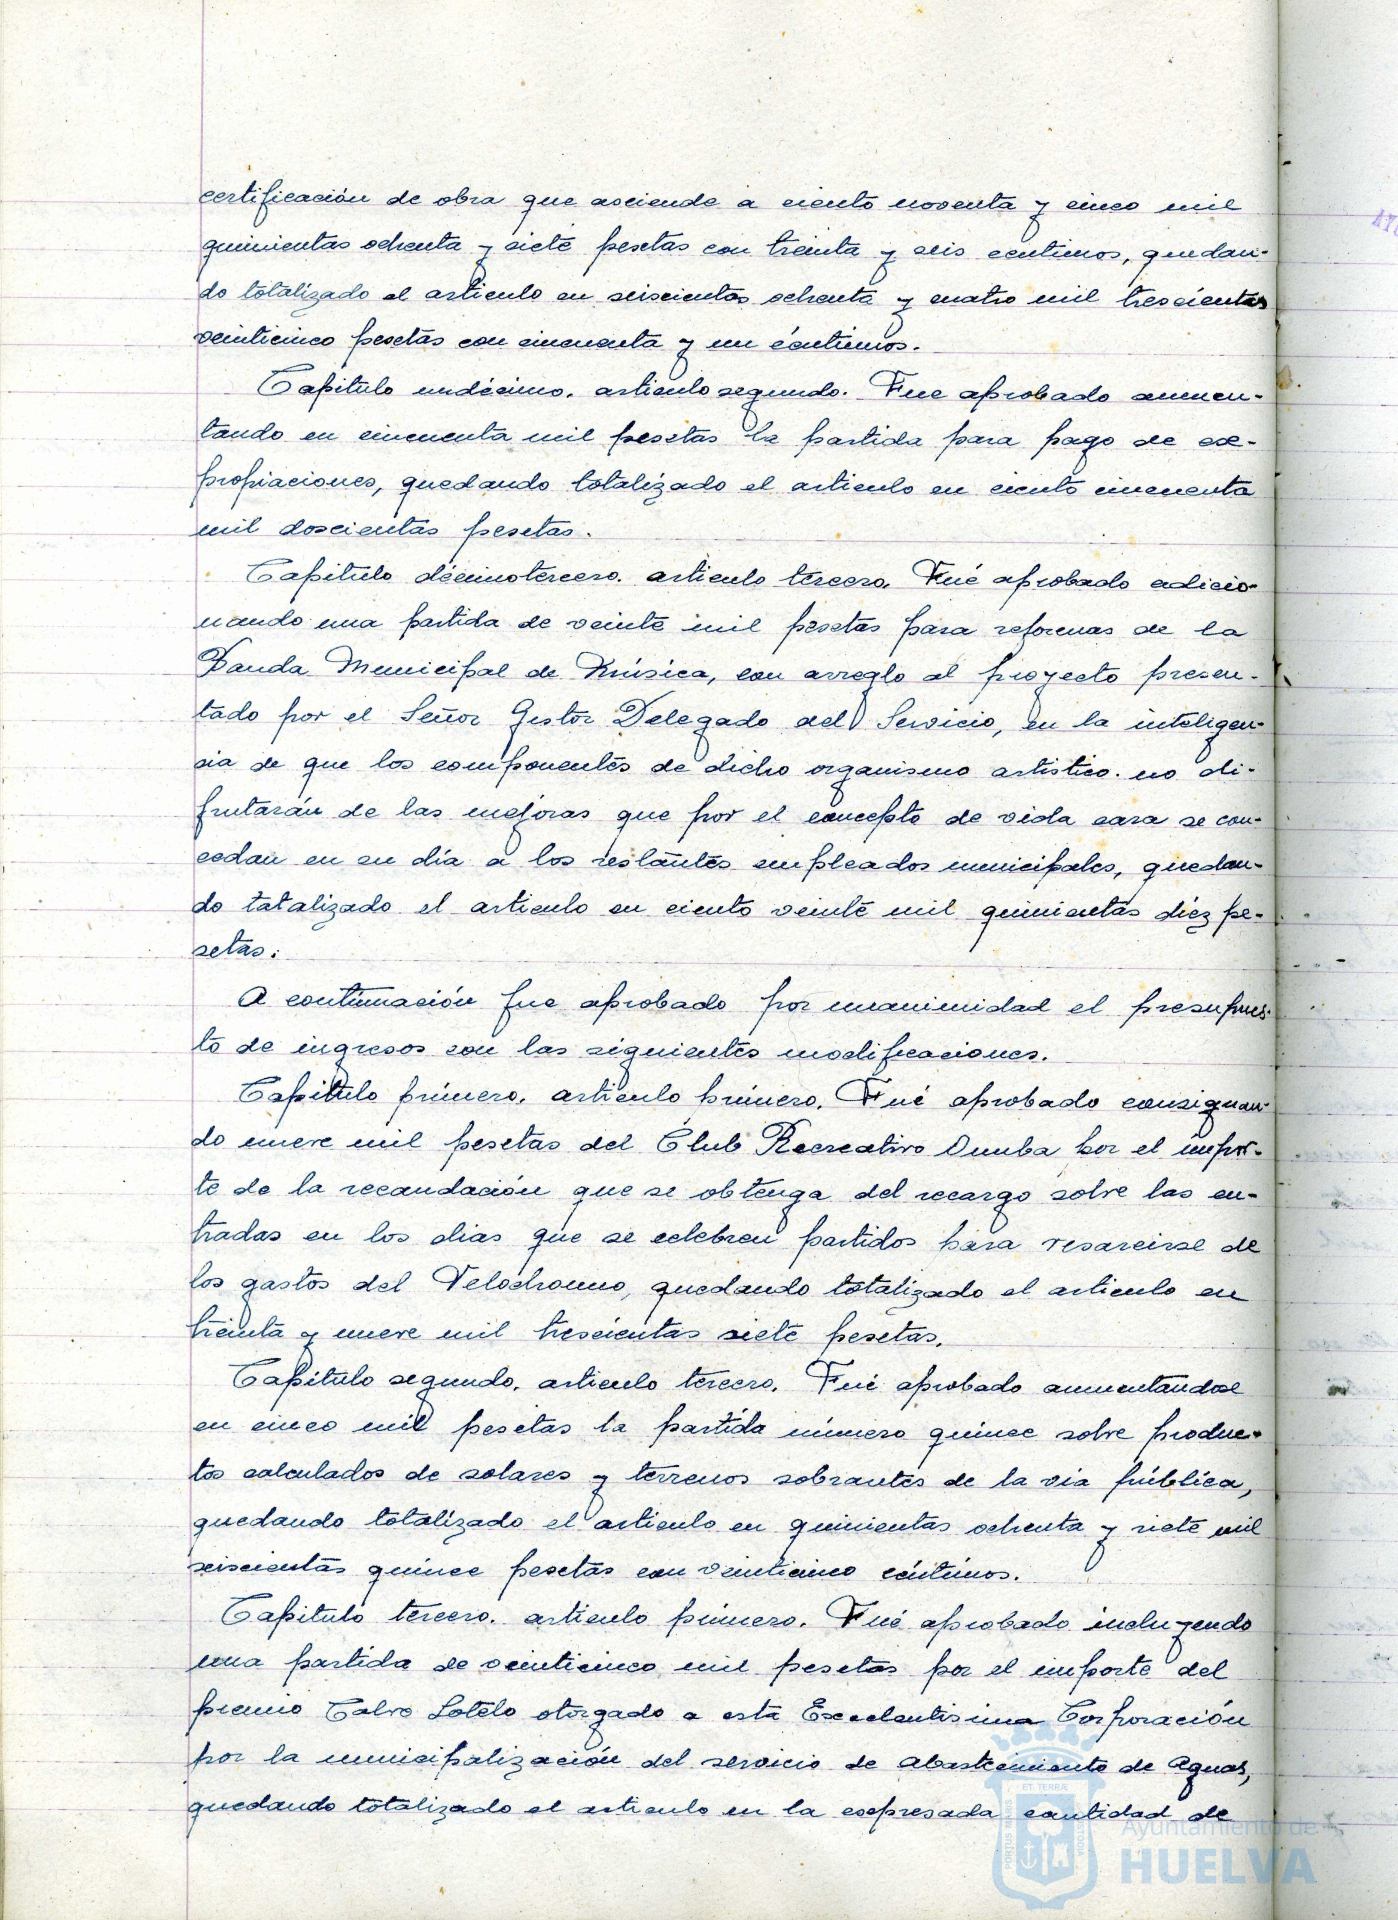 certificación de obra que asciende a ciento noventa y cinco mil
quinientas ochenta y siete pesetas con treinta y seis centimos, quedan-
do totalizado el articulo en seiscientas ochenta y cuatro mil trescientas
veinticinco pesetas con cincuenta y un céntimos.
Capitulo undécimo. articulo segundo. Fue aprobado aumen-
tando en cincuenta mil pesetas la partida para pago de ex-
propiaciones, quedando totalizado el articulo en ciento cincuenta
mil doscientas pesetas.
Capitulo décimotercero. articulo tercero. Fué aprobado adicio-
nando una partida de veinte mil pesetas para reformas de la
Banda Municipal de Música, con arreglo al proyecto presen-
tado por el Señor Gestor Delegado del Servicio, en la inteligen-
cia de que los componentes de dicho organismo artistico. no di-
frutarán de las mejoras que por el concepto de vida cara se con-
cedan en su día a los restantes empleados municipales, quedan-
do tatalizado el articulo en ciento veinte mil quinientas diéz pe-
setas.
A continuación fue aprobado por unanimidad el presupues-
to de ingresos con las siguientes modificaciones.
Capitulo primero. articulo primero. Fué aprobado consignan-
do nueve mil pesetas del Club Recreativo Onuba por el impor-
te de la recaudación que se obtenga del recargo sobre las en-
tradas en los dias que se celebren partidos para resarcirse de
los gastos del Velodromo, quedando totalizado el articulo en
treinta y nueve mil trescientas siete pesetas.
Capitulo segundo. articulo tercero. Fué aprobado aumentandose
en cinco mil pesetas la partida número quince sobre produc-
tos calculados de solares y terrenos sobrantes de la via pública,
quedando totalizado el articulo en quinientas ochenta y siete mil
seiscientas quince pesetas con veinticinco céntimos.
Capitulo tercero. articulo primero. Fué aprobado incluyendo
una partida de veinticinco mil pesetas por el importe del
premio Calvo Sotelo otorgado a esta Excelentisima Corporación
por la municipalización del servicio de Abastecimiento de Aguas,
quedando totalizado el articulo en la expresada cantidad de
ET. TERRÆ
PORTUS MARIS
CUSTODIA
Ayuntamiento de
HUELVA